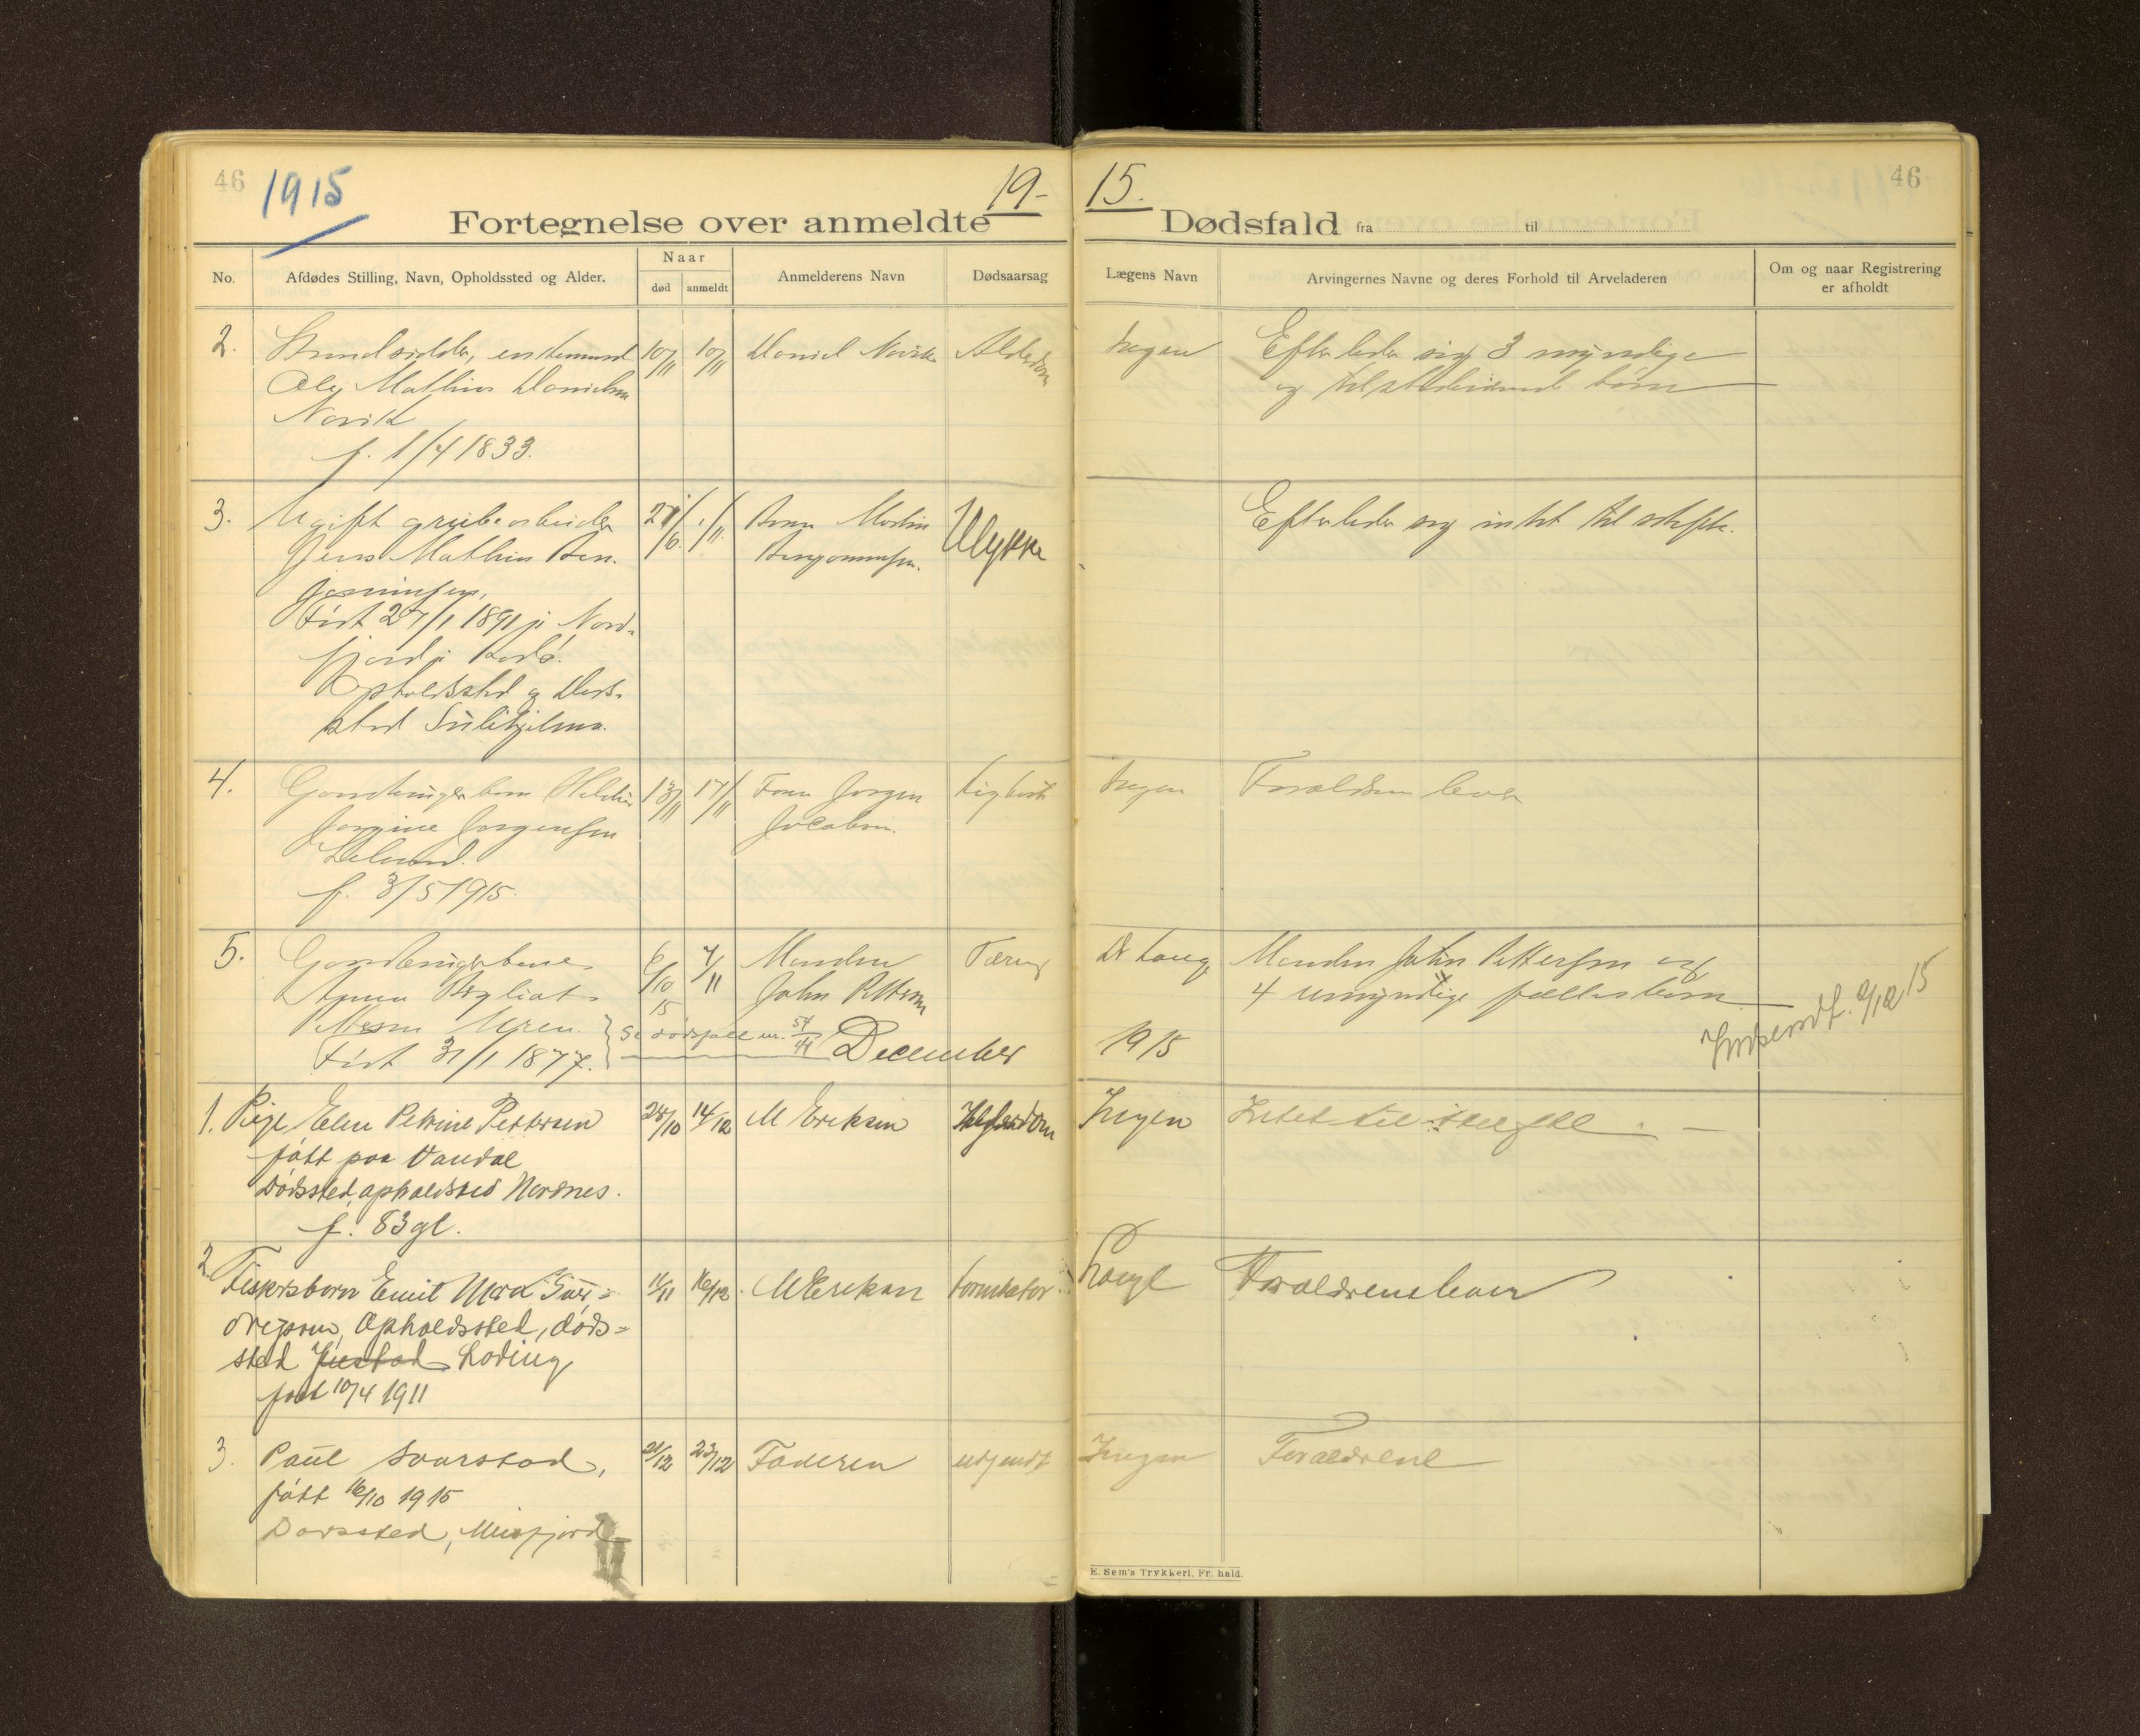 46
1915
19-
15.
46
Fortegnelse over anmeldte
Dødsfald fra til
No.
Afdødes Stilling, Navn, Opholdssted og Alder.
Naar
død
anmeldt
Anmelderens Navn
Dødsaarsag
Lægens Navn
Arvingernes Navne og deres Forhold til Arveladeren
Om og naar Registrering
er afholdt
2.
Strandsidder, enkemand
Ole Mathias Danielsen
Norvik
f. 1/4 1833.
10/11
10/11
Daniel Norvik
Alderdom
Ingen
Efterlader sig 3 myndige
og tilstedeværende børn
3.
Ugift grubearbeider
Jens Mathias Ben-
jaminsen,
Født 27/1 1891 i Nord-
fjord i Rødø.
Opholdssted og Døds-
sted Sulitjelma.
1/11
Benjaminsen.
Ulykke
Efterlader sig intet til skifte.
4.
Gaardbrugerbarn
Jorgine Jørgensen
f. 3/5 1915.
13/11
17/11
Faren Jørgen
Jacobsen.
Kighoste
Ingen
Forældrene lever
5.
Gaardbrugerkone
Anna
Pettersen
Født 31/1 1877.
6/10
15
7/11
Manden
John Pettersen
Tæring
Dr Lange
Manden John Pettersen og
4 umyndige fællesbørn
Se dødsfall nr. 54/44
Innsendt. 6/12 15
December
1915
1. Pige Elen Petrine Pettersen
født paa Vandal
Dødssted, opholdssted Nordnes.
f. 83 gl.
28/10
14/12
M Eriksen
Alderdom
Ingen
Intet til skifte . —
2.
Fiskersbarn Emil
Opholdssted, døds-
sted Løding
født 10/4 1911
11/11
16/12.
M Eriksen
Lange
Forældrene lever
3.
Paul Svarstad,
født 16/10 1915
Dødssted, Misfjord
21/12
23/12
Faderen
ukjendt
Ingen
Forældrene
E. Sem's Trykkeri, Fr. hald.